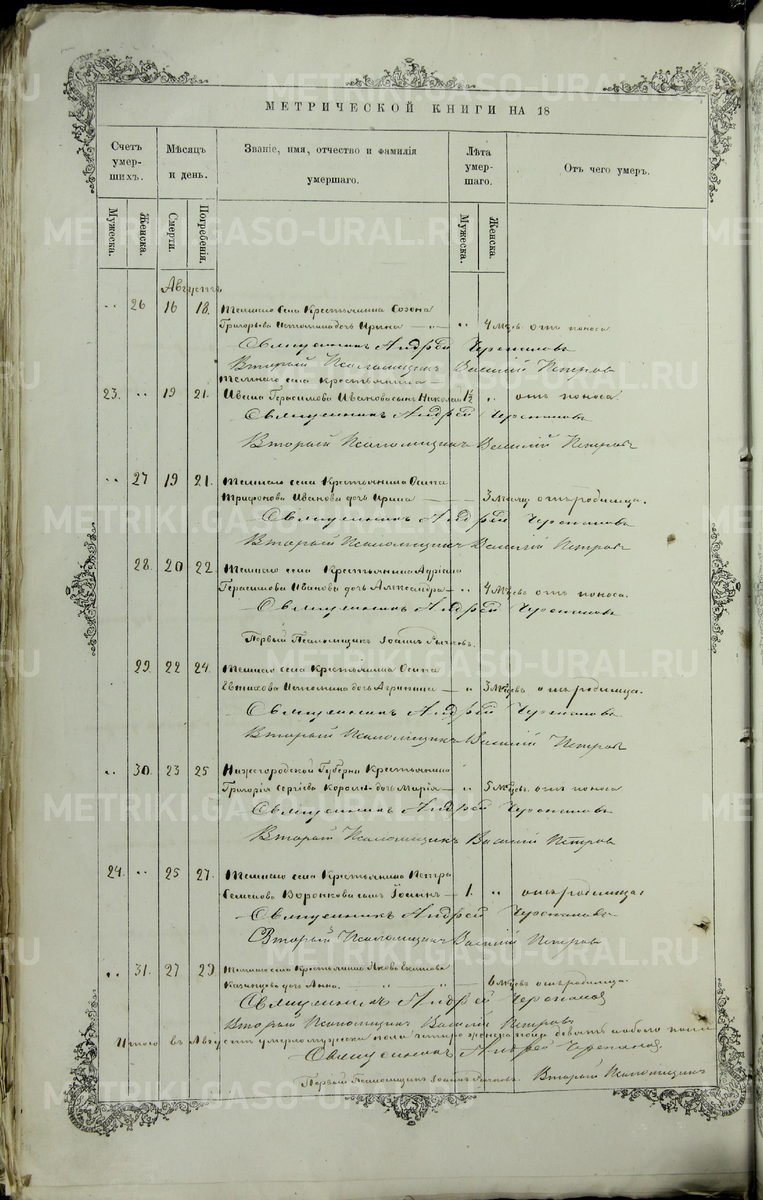 МЕТРИЧЕСКОЙ КНИГИ НА 18
Счетъ умер- шихъ. Мѣсяцъ и день. Званіе, имя, отчество и фамилія умершаго. Лѣта умер- шаго. Отъ чего умеръ.
Мужеска. Женска. Смерти. Погребенія. Мужеска. Женска.
Августъ
„ 26 16 18. села Крестьянина Созона
Григорьева дочь Ирина — „ 4 мѣс. отъ поноса
Священникъ Андрей Черепановъ
Вторый Псаломщикъ Василій Петровъ
села крестьянина
23. „ 19 21. Ивана Герасимова Иванова сынъ Николай 1½ „ отъ поноса
Священникъ Андрей Черепановъ
Вторый Псаломщикъ Василій Петровъ
„ 27 19 21. села Крестьянина Осипа
Трифонова Иванова дочь Ирина — 3 мѣсяц. отъ родимца.
Священникъ Андрей Черепановъ
Вторый Псаломщикъ Василій Петровъ
28. 20 22 села Крестьянина Адріана
Герасимова Иванова дочь Александра — „ 4 мѣсяцевъ отъ поноса.
Священникъ Андрей Черепановъ
Первый Псаломщикъ Іоаннъ
29. 22 24. села Крестьянина Осипа
дочь Агрипина „ 3 мѣсяцевъ отъ родимца.
Священникъ Андрей Черепановъ
Вторый Псаломщикъ Василій Петровъ
„ 30. 23 25 Нижегородской Губерни Крестьянина
Григорія Сергіева дочь Марія — „ 5 мѣсяцевъ. отъ поноса
Священникъ Андрей Черепановъ
Вторый Псаломщикъ Василій Петровъ
24. „ 25 27. села Крестьянина Петра
Семенова Воронкова сынъ Іоаннъ — 1. „ отъ родимца
Священникъ Андрей Черепановъ
Вторый Псаломщикъ Василій Петровъ
„ 31. 27 29. села Крестьянина Якова
Казанцева дочь Анна. „ „ 6 мѣсяцевъ отъ родимца.
Священникъ Андрей Черепановъ
Вторый Псаломщикъ Василій Петровъ
Итого въ Августѣ умерло мужеска пола четыре женска пола девять обоего пола
Священникъ Андрей Черепановъ
Первый Псаломщикъ Іоаннъ Вторый Псаломщикъ
METRIKI.GASO-URAL.RU